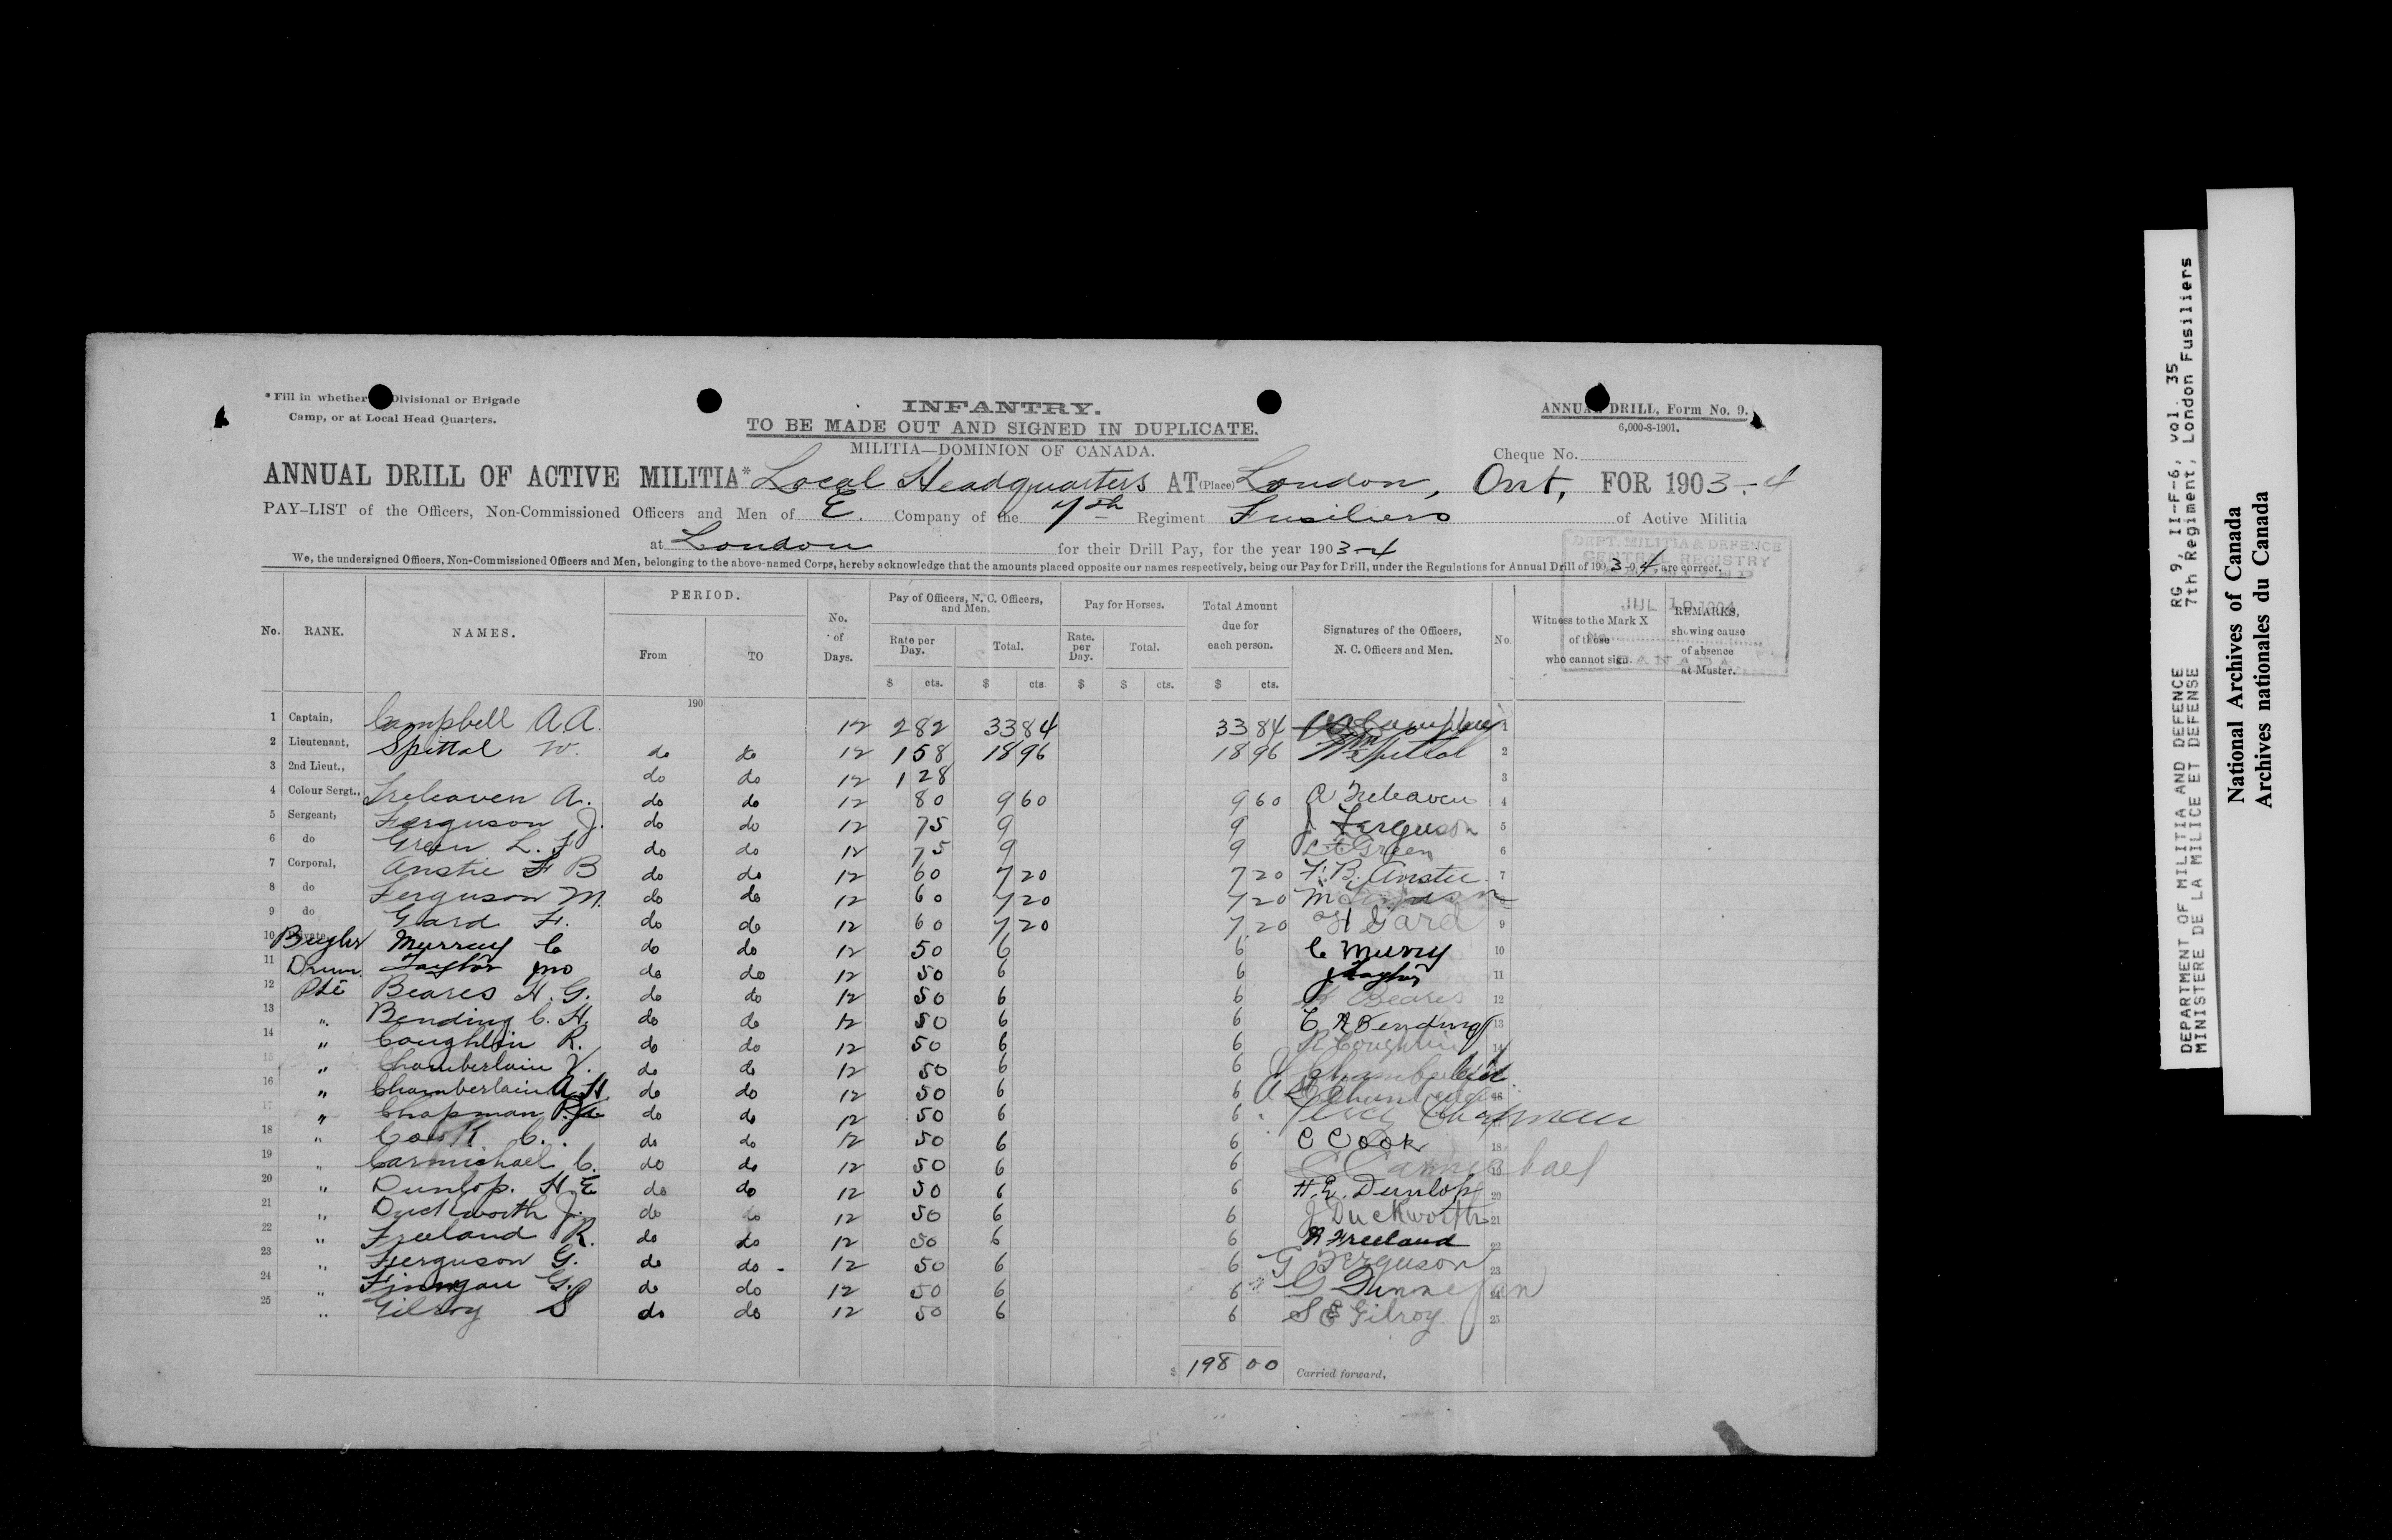 * Fill in whether Divisional or Brigade
Camp, or at Local Head Quarters.
INFANTRY.
TO BE MADE OUT AND SIGNED IN DUPLICATE.
MILITIA—DOMINION OF CANADA.
ANNUAL DRILL, Form No. 9.
6,000-8-1901.
Cheque No.
ANNUAL DRILL OF ACTIVE MILITIA* Local Headquarters AT (Place) London, Ont, FOR 1903-4
PAY-LIST of the Officers, Non-Commissioned Officers and Men of E. Company of the 7th Regiment Fusiliers of Active Militia
at London for their Drill Pay, for the year 1903-4
We, the undersigned Officers, Non-Commissioned Officers and Men, belonging to the above-named Corps, hereby acknowledge that the amounts placed opposite our names respectively, being our Pay for Drill, under the Regulations for Annual Drill of 1903-04, are correct.
DEPT. MILITIA & DEFENCE
CENTRAL REGISTRY
JUL 1904
CANADA
No. RANK. NAMES. PERIOD. From TO No. of Days. Pay of Officers, N. C. Officers, and Men. Rate per Day. Total. Pay for Horses. Rate. per Day. Total. Total Amount due for each person. Signatures of the Officers, N. C. Officers and Men. No. Witness to the Mark X of those who cannot sign. REMARKS, showing cause of absence at Muster.
$ cts. $ cts. $ $ cts. $ cts.
190
1 Captain, Campbell A.A. 12 2 82 33 84 33 84 1
2 Lieutenant, Spittal W. do do 12 1 58 18 96 18 96 Wm Spittal 2
3 2nd Lieut., do do 12 1 28 3
4 Colour Sergt., Treleaven A. do do 12 80 9 60 9 60 A Treleaven 4
5 Sergeant, Ferguson J. do do 12 75 9 9 J Ferguson 5
6 do Green L. F do do 12 75 9 9 L F Green 6
7 Corporal, Anstie F B do do 12 60 7 20 7 20 F. B. Anstie 7
8 do Ferguson M. do do 12 60 7 20 7 20 M Ferguson
9 do Gard H. do do 12 60 7 20 7 20 H Gard 9
10 Bugler Murray C do do 12 50 6 6 C Murry 10
11 Drum. Taylor Jno do do 12 50 6 6 J Taylor 11
12 Pte Beares H. G. do do 12 50 6 6 H Beares 12
13 " Bending C. H. do do 12 50 6 6 C H Bending 13
14 " Coughlin R. do do 12 50 6 6 R Coughlin 14
15 " Chamberlain V. do do 12 50 6 6 V Chamberlain
16 " Chamberlain A. H. do do 12 50 6 6 16
17 " Chapman P. do do 12 50 6 6 Percy Chapman
18 " Cook C. do do 12 50 6 6 C Cook 18
19 " Carmichael C. do do 12 50 6 6 C Carmichael 19
20 " Dunlop. H. E do do 12 50 6 6 H. E. Dunlop 20
21 " Duckworth J. do do 12 50 6 6 J Duckworth 21
22 " Freeland R. do do 12 50 6 6 R Freeland 22
23 " Ferguson G. do do 12 50 6 6 G Ferguson 23
24 " G. do do 12 50 6 6 G 24
25 " Gilroy S do do 12 50 6 6 S E Gilroy 25
$ 198 00 Carried forward,
DEPARTMENT OF MILITIA AND DEFENCE RG 9, II-F-6, vol. 35
MINISTERE DE LA MILICE ET DEFENSE 7th Regiment, London Fusiliers
National Archives of Canada
Archives nationales du Canada